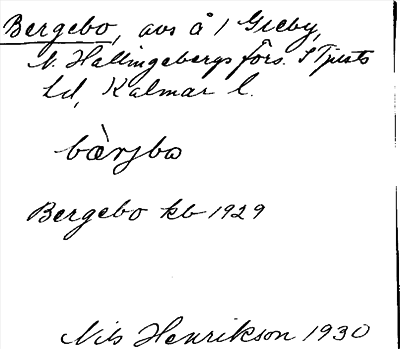 Bergebo, avs å 1 Greby,
N. Hallingebergs förs. S Tjusts
hd, Kalmar l.
bæ̀rjbo
Bergebo kb 1929
Nils Henrikson 1930